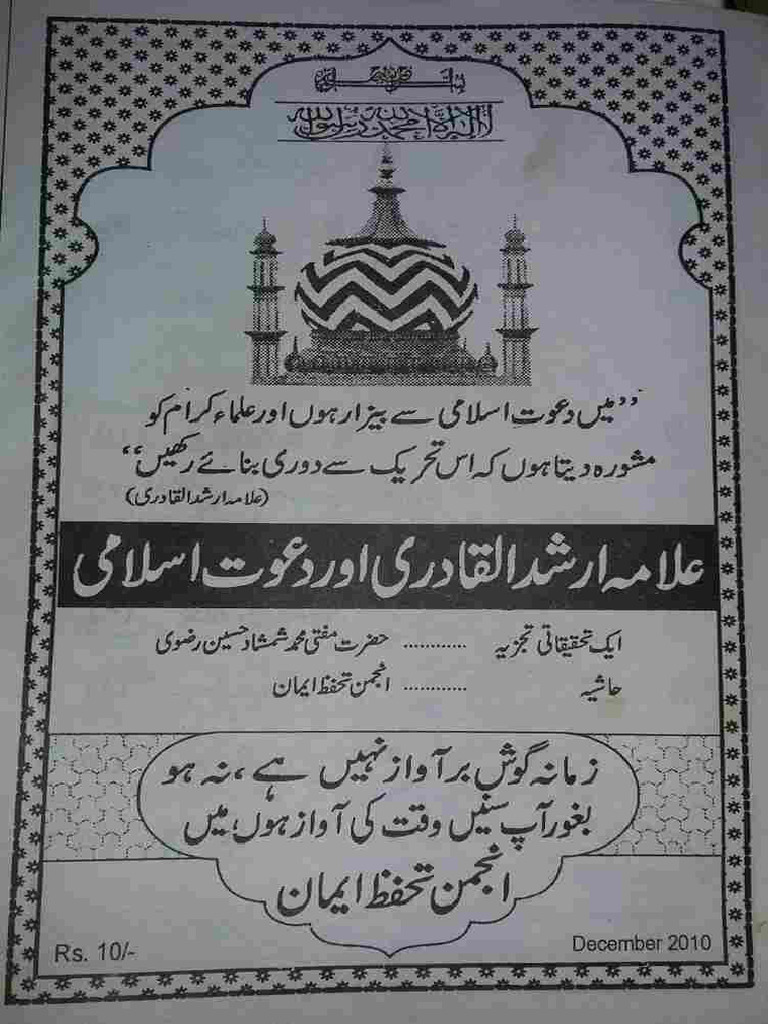 بسم اللہ الرحمن الرحیم
لا الہ الا اللہ محمد رسول اللہ
”میں دعوت اسلامی سے بیزار ہوں اور علماء کرام کو
مشورہ دیتا ہوں کہ اس تحریک سے دوری بنائے رکھیں“
(علامہ ارشد القادری)
علامہ ارشد القادری اور دعوت اسلامی
ایک تحقیقاتی تجزیہ ............ حضرت مفتی محمد شمشاد حسین رضوی
حاشیہ ............ انجمن تحفظ ایمان
زمانہ گوش بر آواز نہیں ہے ، نہ ہو
بغور آپ سنیں وقت کی آواز ہوں میں
انجمن تحفظ ایمان
Rs. 10/-
December 2010